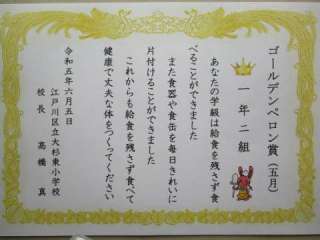 ゴールデンペロン賞(五月)
一年二組
あなたの学級は給食を残さず食
べることができました
また食器や食缶を毎日きれいに
片付けることができました
これからも給食を残さず食べて
健康で丈夫な体をつくってください
令和五年六月五日
江戸川区立大杉東小学校
校長 高橋 真